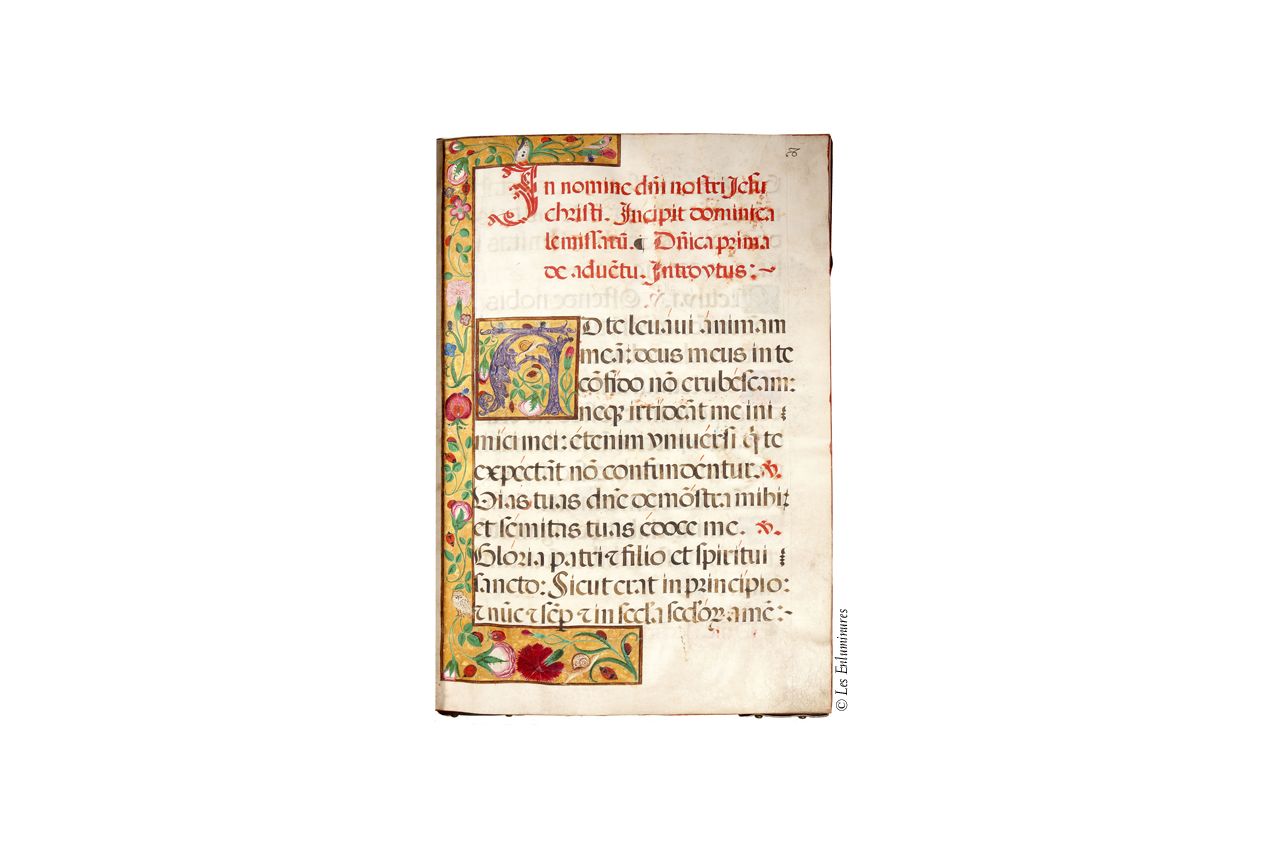 In nomine dñi nostri Jesu
christi. Incipit dominica
le missarũ. Dñica prima
de aduẽtu. Introytus:~
AD te leuáui ánimam
meã: deus meus in te
cõfído nõ erubéscam:
neqꝫ irrídeãt me ini
míci mei: étenim vniuérsi q̃ te
expéctãt nõ confundéntur. ℣.
Vias tuas dñe demõstra mihi:
et sémitas tuas édoce me. ℣.
Glória patri ⁊ fílio et spirítui
sancto: Sicut erat in princípio:
⁊ nũc ⁊ sẽp ⁊ in secľa secľoꝝ amẽ:~
© Les Enluminures